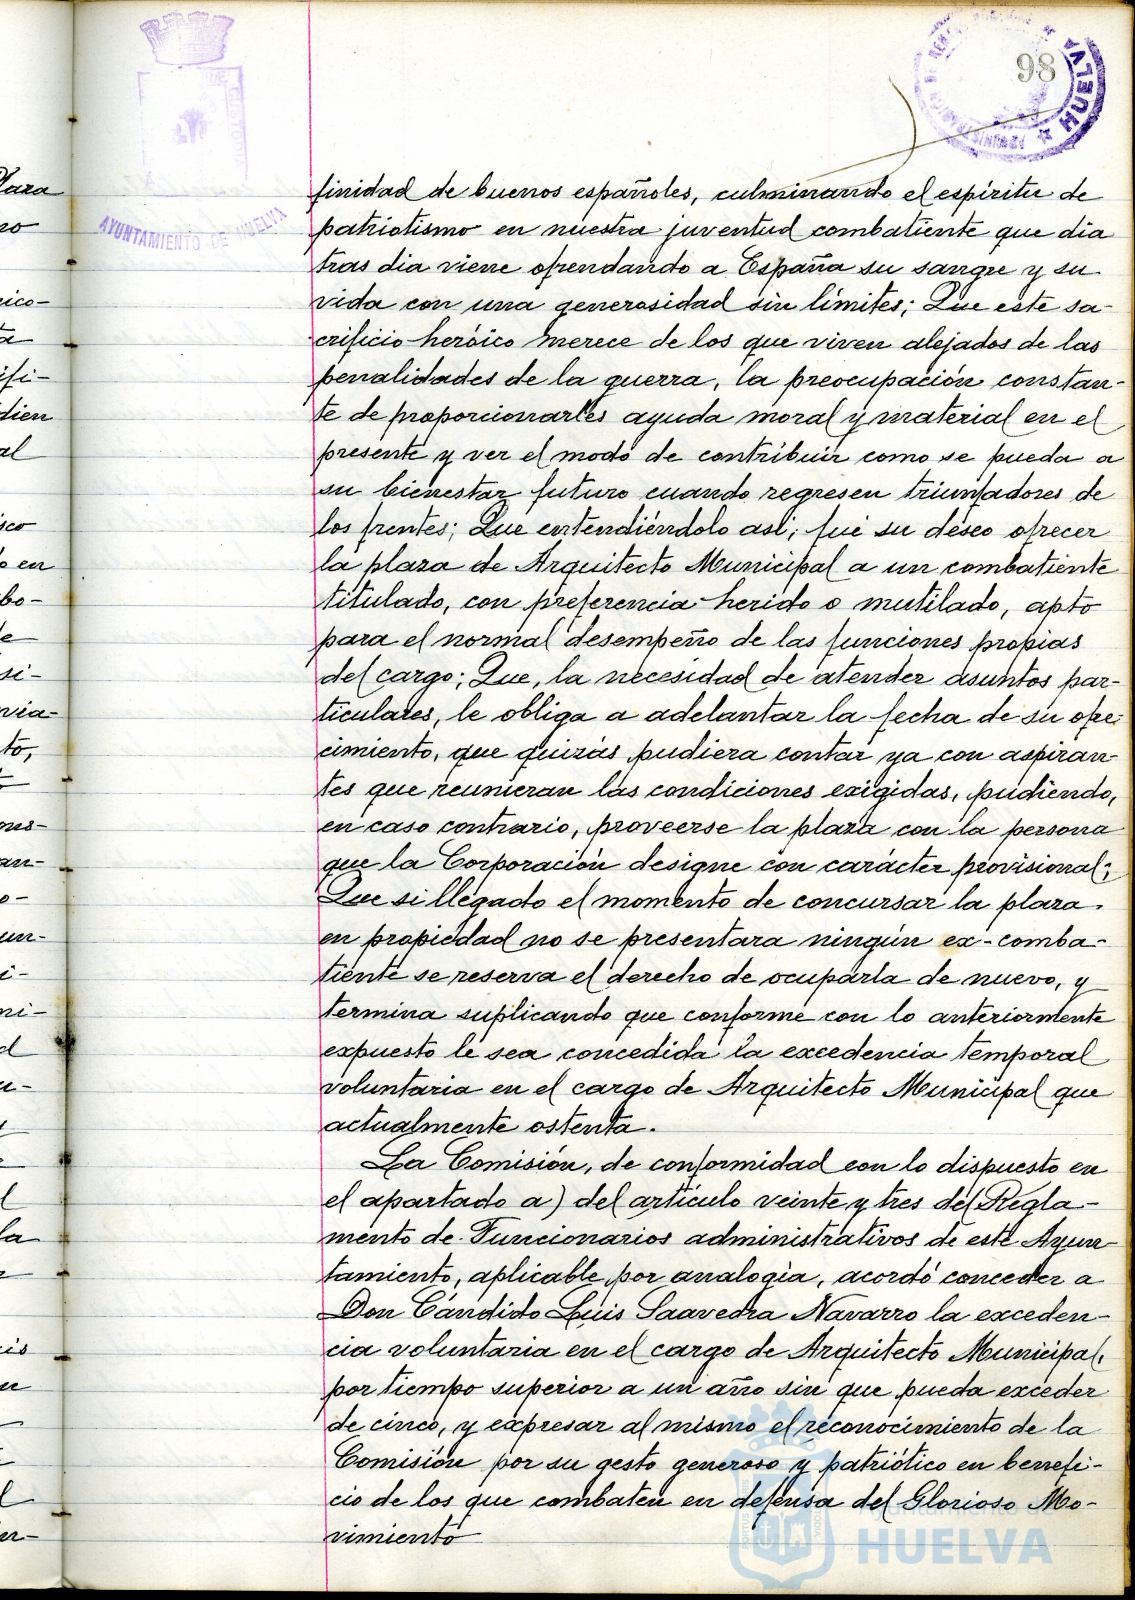 98
HUELVA
AYUNTAMIENTO DE HUELVA
finidad de buenos españoles, culminando el espíritu de
patriotismo en nuestra juventud combatiente que dia
tras dia viene ofrendando a España su sangre y su
vida con una generosidad sin límites; Que este sa-
crificio heróico merece de los que viven alejados de las
penalidades de la guerra, la preocupación constan-
te de proporcionarles ayuda moral y material en el
presente y ver el modo de contribuir como se pueda a
su bienestar futuro cuando regresen triunfadores de
los frentes; Que entendiéndolo así, fué su deseo ofrecer
la plaza de Arquitecto Municipal a un combatiente
titulado, con preferencia herido o mutilado, apto
para el normal desempeño de las funciones propias
del cargo; Que, la necesidad de atender asuntos par-
ticulares, le obliga a adelantar la fecha de su ofre-
cimiento, que quizás pudiera contar ya con aspiran-
tes que reunieran las condiciones exigidas, pudiendo,
en caso contrario, proveerse la plaza con la persona
que la Corporación designe con carácter provisional;
Que si llegado el momento de concursar la plaza
en propiedad no se presentara ningún ex-comba-
tiente se reserva el derecho de ocuparla de nuevo, y
termina suplicando que conforme con lo anteriormente
expuesto le sea concedida la excedencia temporal
voluntaria en el cargo de Arquitecto Municipal que
actualmente ostenta.
La Comisión, de conformidad con lo dispuesto en
el apartado a) del artículo veinte y tres del Regla-
mento de Funcionarios administrativos de este Ayun-
tamiento, aplicable por analogía, acordó conceder a
Don Cándido Luis Saavedra Navarro la exceden-
cia voluntaria en el cargo de Arquitecto Municipal,
por tiempo superior a un año sin que pueda exceder
de cinco, y expresar al mismo el reconocimiento de la
Comisión por su gesto generoso y patriótico en benefi-
cio de los que combaten en defensa del Glorioso Mo-
vimiento
Ayuntamiento de
HUELVA